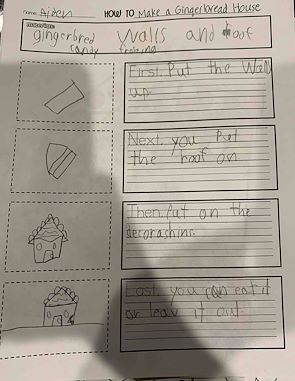 name: Aiden HOW TO Make a Gingerbread House
materials:
gingerbred walls and roof
candy frosting
First, Put the Walls
up.
Next, you Put
the roof on
Then, Put on the
decorashins.
Last, you can eat it
or leav it out.